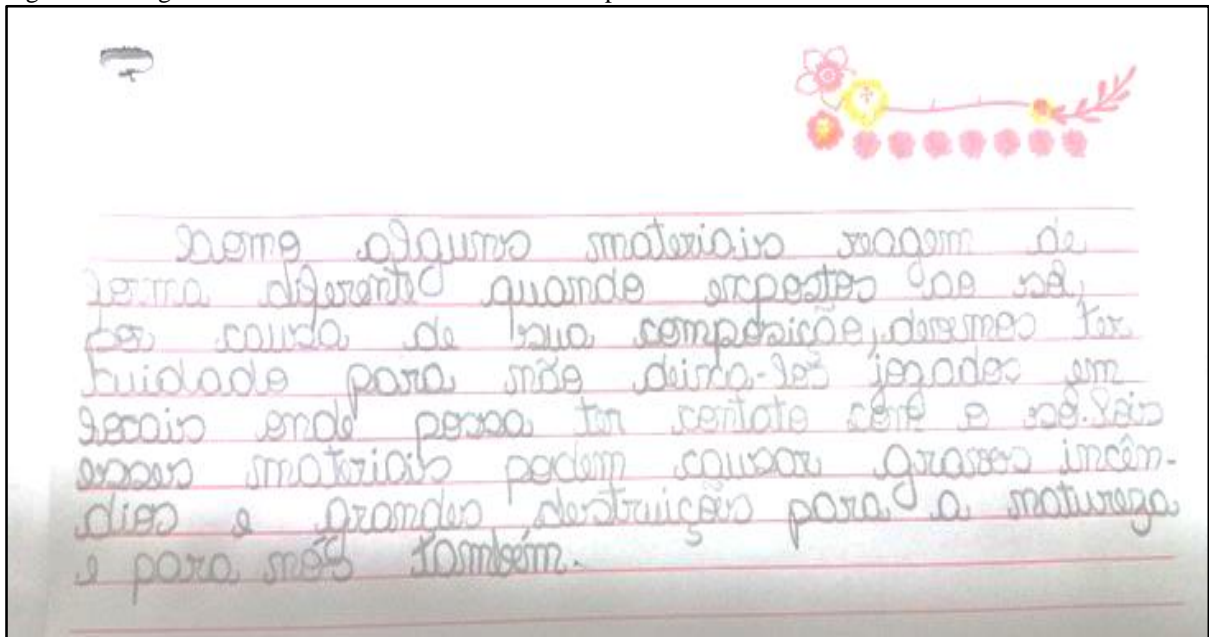 Como alguns materiais reagem de
forma diferente quando expostos ao sol,
por causa de sua composição, devemos ter
cuidado para não deixa-los jogados em
locais onde possa ter contato com o sol. Pois
esses materiais podem causar graves incên-
dios e grandes destruições para a natureza
e para nós também.